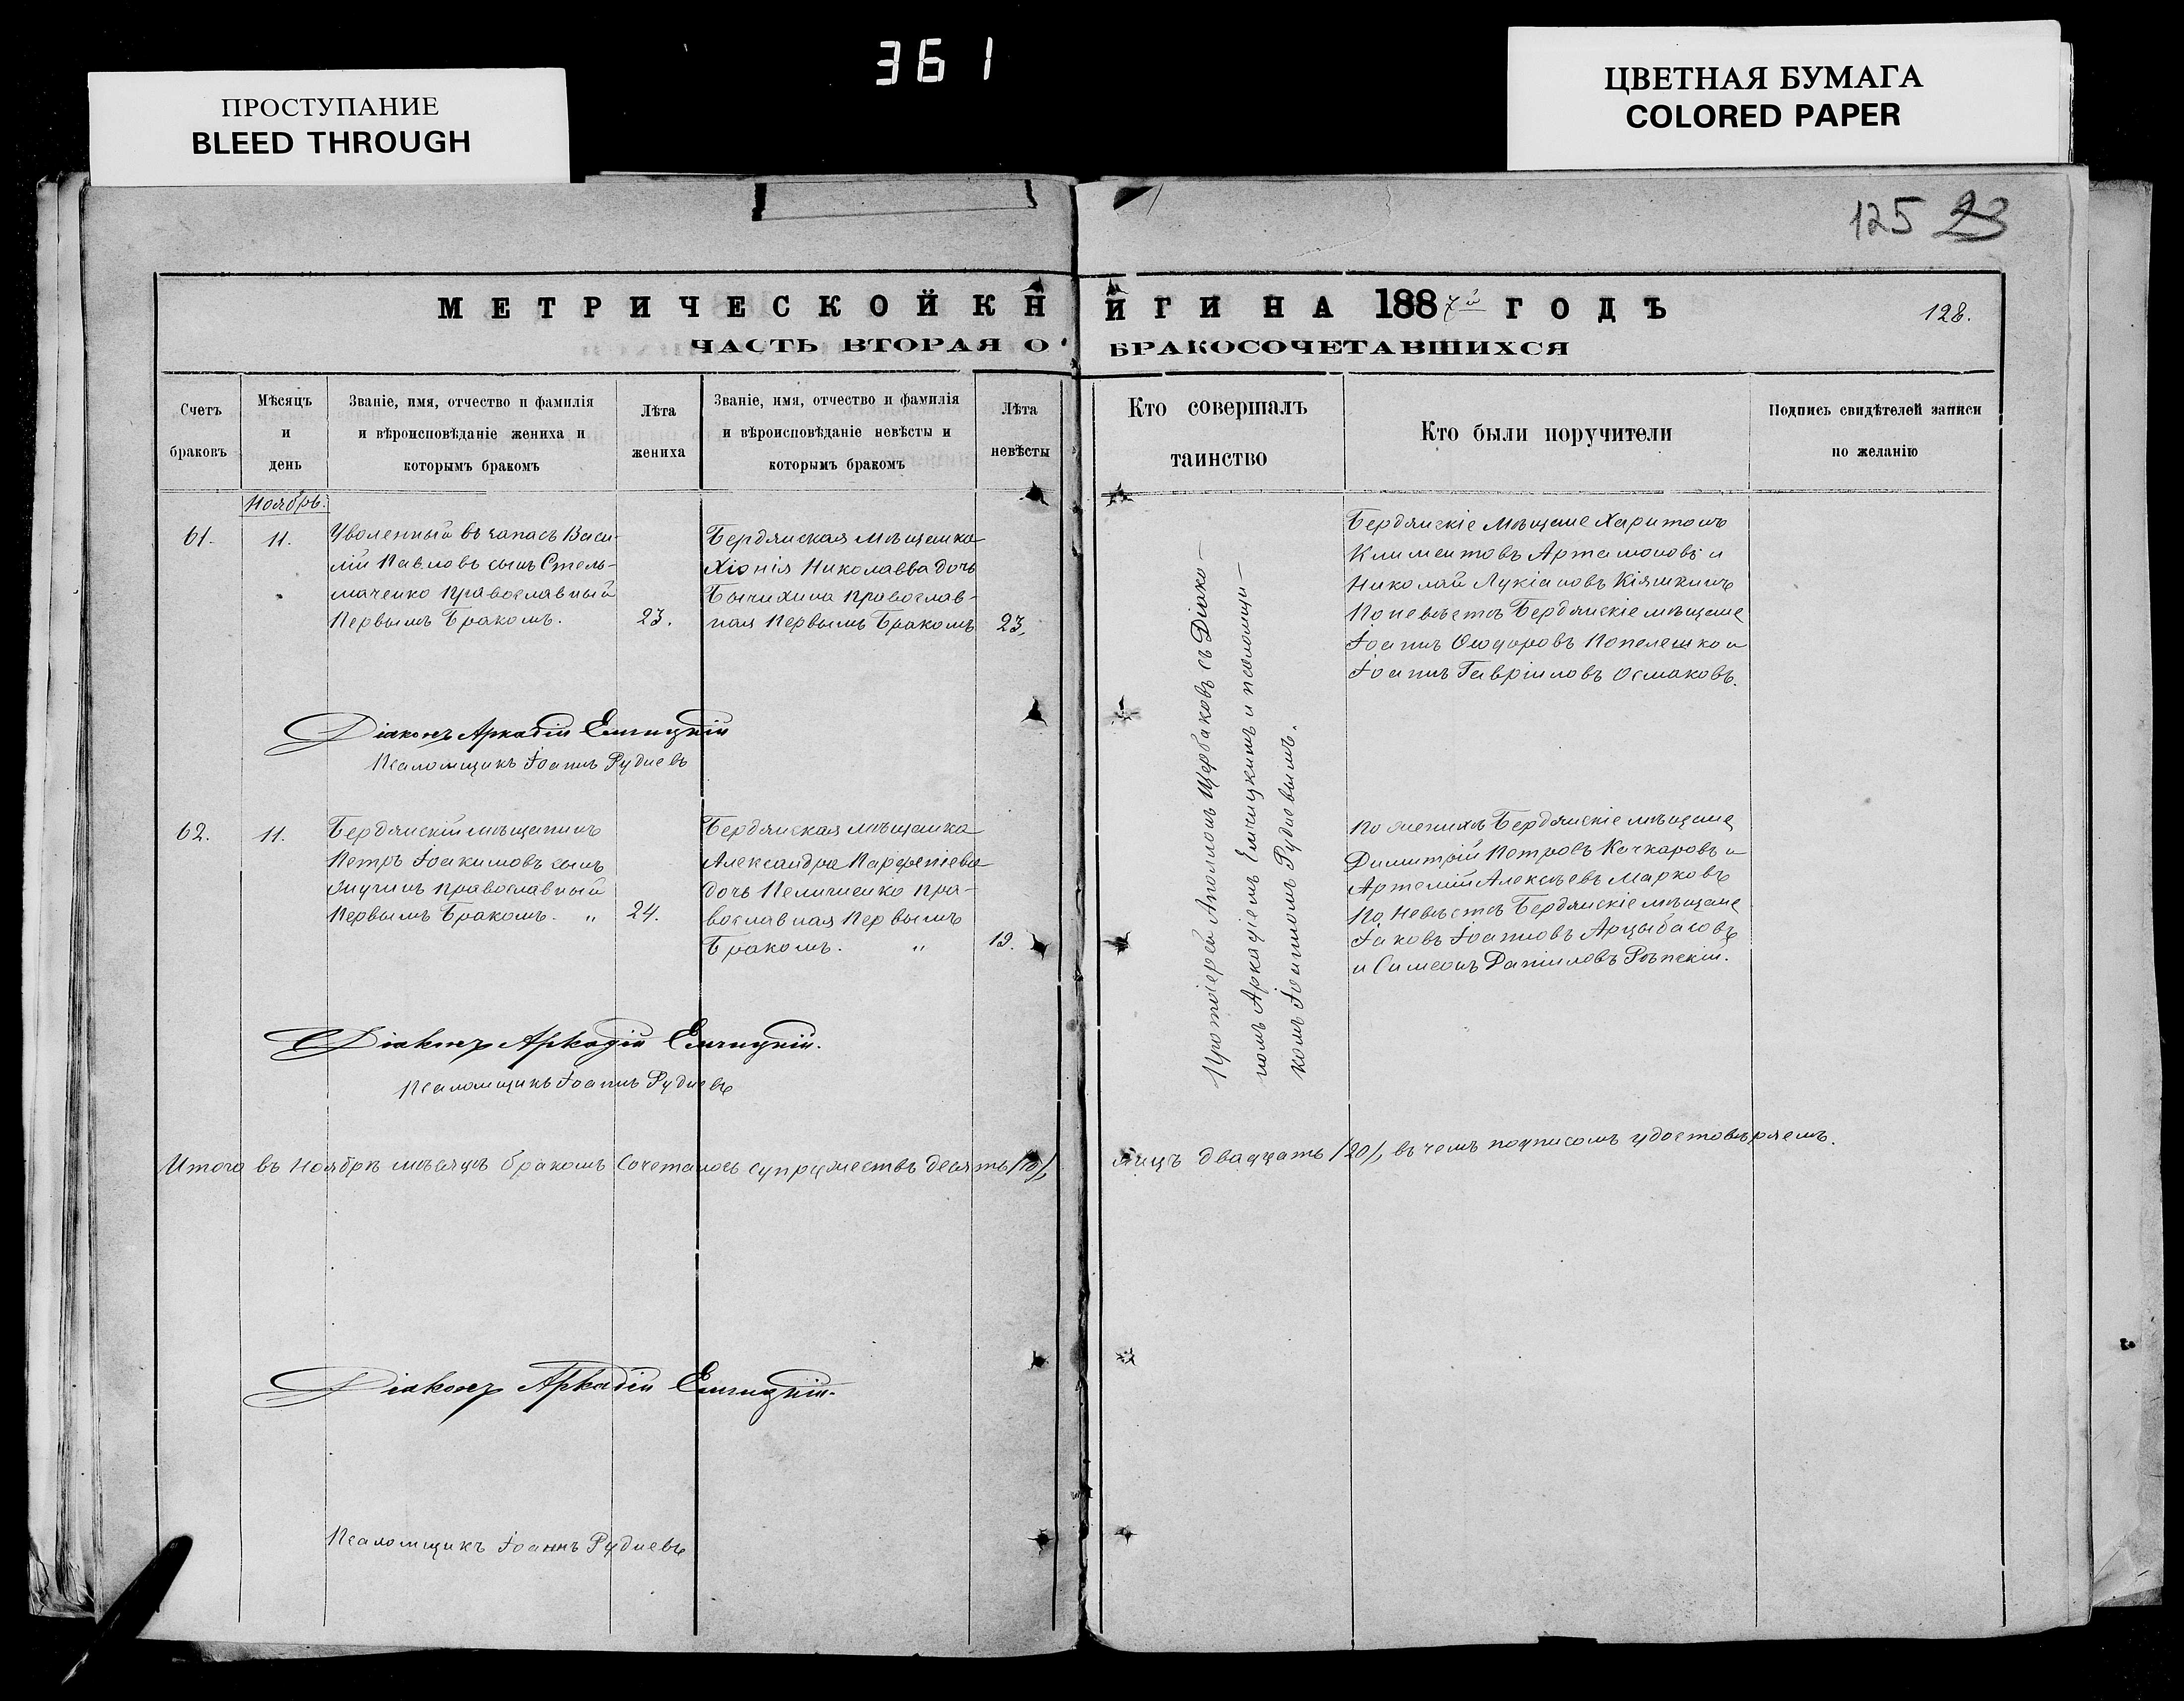 361
ПРОСТУПАНИЕ
BLEED THROUGH
ЦВЕТНАЯ БУМАГА
COLORED PAPER
125 23
МЕТРИЧЕСКОЙ КНИГИ НА 1887й ГОДЪ
128.
ЧАСТЬ ВТОРАЯ О БРАКОСОЧЕТАВШИХСЯ
Счетъ
браковъ
Мѣсяцъ
и
день
Званіе, имя, отчество и фамилія
и вѣроисповѣданіе жениха и
которымъ бракомъ
Лѣта
жениха
Званіе, имя, отчество и фамилія
и вѣроисповѣданіе невѣсты и
которымъ бракомъ
Лѣта
невѣсты
Кто совершалъ
таинство
Кто были поручители
Подпись свидѣтелей записи
по желанію
Ноябрь.
61.
11.
Уволенный въ запасъ Васи-
лій Павловъ сынъ Стель-
маченко православный
Первымъ Бракомъ.
23.
Бердянская мѣщанка
Хіонія Николаева дочь
Бычихина православ-
ная Первымъ Бракомъ
23.
Протоіерей Аполлонъ Щербаковъ съ Діако-
номъ Аркадіемъ Емчицкимъ и псаломщи-
комъ Іоанномъ Рудневымъ.
Бердянскіе мѣщане Харитонъ
Климентовъ Артамоновъ и
Николай Лукіановъ Кіяшкинъ
По невѣстѣ Бердянскіе мѣщане
Іоаннъ Ѳеодоровъ Попелешко и
Іоаннъ Гавріиловъ Осмаковъ.
Діаконъ Аркадій Емчицкій
Псаломщикъ Іоаннъ Рудневъ
62.
11.
Бердянскій мѣщанинъ
Петръ Іоакимовъ сынъ
православный
Первымъ Бракомъ. "
24.
Бердянская мѣщанка
Александра Парфеніева
дочь Пеличенко пра-
вославная Первымъ
Бракомъ. "
19.
По женихѣ Бердянскіе мѣщане
Димитрій Петровъ Качкаровъ и
Артемій Алексѣевъ Марковъ
По Невѣстѣ Бердянскіе мѣщане
Іаковъ Іоанновъ Арцыбасовъ
и Симеонъ Даніиловъ Рѣпскій.
Діаконъ Аркадій Емчицкій.
Псаломщикъ Іоаннъ Рудневъ
Итого въ Ноябрѣ мѣсяцѣ бракомъ сочеталось супружествъ десять /10/, лицъ двадцать /20/, въ чемъ подписомъ удостовѣряемъ.
Діаконъ Аркадій Емчицкій.
Псаломщикъ Іоаннъ Рудневъ